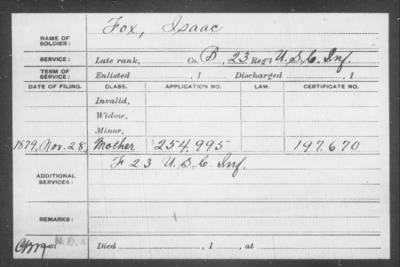 NAME OF SOLDIER: Fox, Isaac
SERVICE: Late rank, Co. B, 23 Reg't U.S.C. Inf.
TERM OF SERVICE: Enlisted , 1 Discharged , 1
DATE OF FILING. CLASS. APPLICATION NO. LAW. CERTIFICATE NO.
Invalid,
Widow,
Minor,
1879, Nov. 28, Mother 254.995 197.670
ADDITIONAL SERVICES: F 23 U.S.C. Inf.
REMARKS:
Died , 1 , at